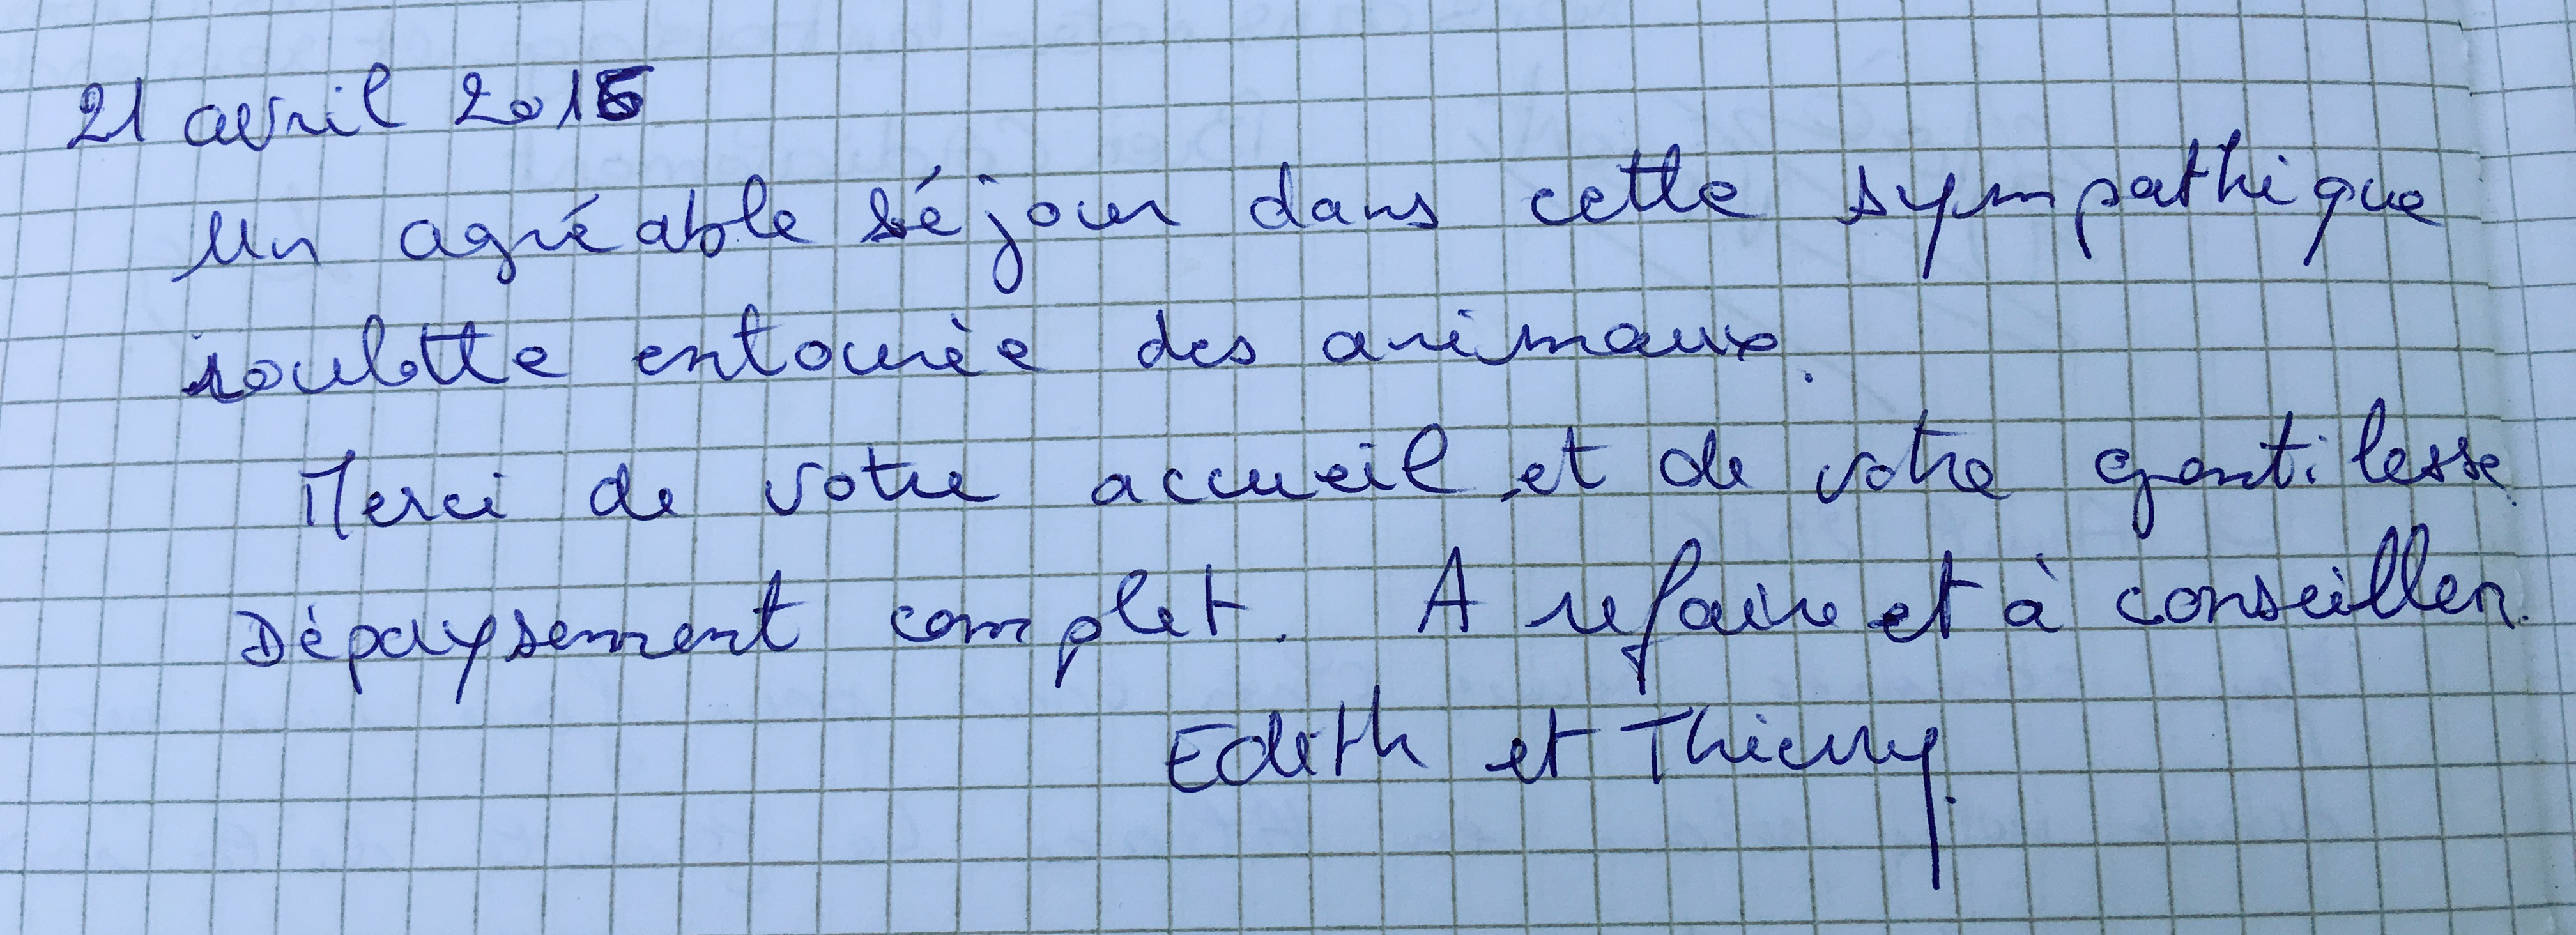 21 avril 2016
Un agréable séjour dans cette sympathique
roulotte entourée des animaux.
Merci de votre accueil et de votre gentilesse.
Dépaysement complet. A refaire et à conseiller.
Edith et Thierry.